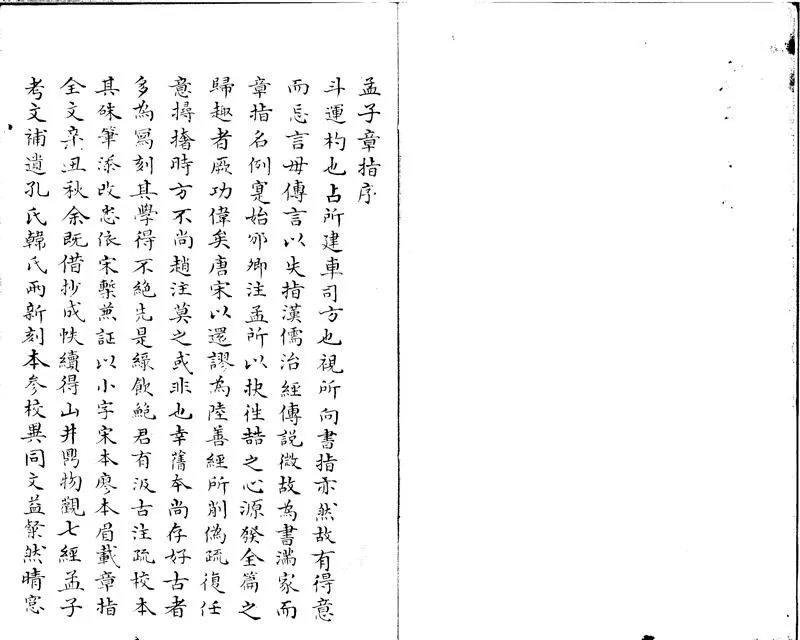 孟子章指序
斗運杓也占所建車司方也視所向書指亦然故有得意
而忘言毋傳言以失指漢儒治經傳說微故為書滿家而
章指名例寔始邠卿注孟所以抉徃喆之心源發全篇之
歸趣者厥功偉矣唐宋以還謬為陸善經所削偽疏復任
意撏撦時方不尚趙注莫之或非也幸舊本尚存好古者
多為寫刻其學得不絶先是綠飲鮑君有汲古注疏校本
其硃筆添改悉依宋槧兼証以小字宋本廖本眉載章指
全文辛丑秋余既借抄成帙續得山井鼎物觀七經孟子
考文補遺孔氏韓氏兩新刻本參校異同文益粲然晴窓